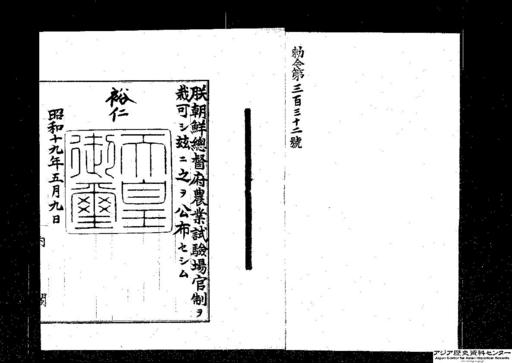 勅令第三百三十二號
朕朝鮮總督府農業試驗場官制ヲ
裁可シ玆ニ之ヲ公布セシム
裕仁
天皇
御璽
昭和十九年五月九日
内閣
アジア歴史資料センター
Japan Center for Asian Historical Records